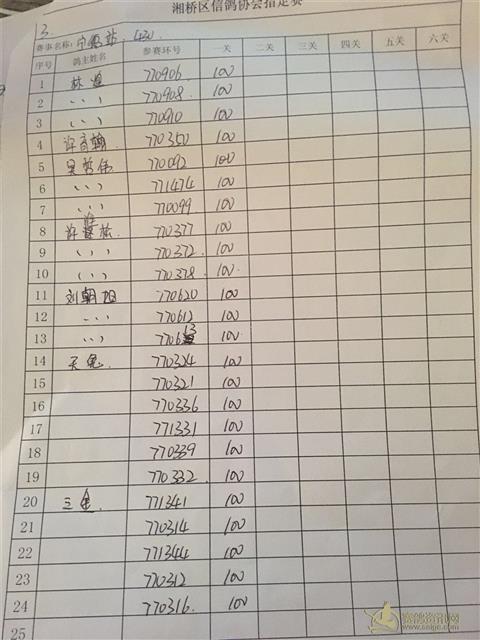 湘桥区信鸽协会指定赛
3.
赛事名称: 宁德站
序号 鸽主姓名 参赛环号 一关 二关 三关 四关 五关 六关
1 林 770906 100
2 〃 770908 100
3 〃 770910 100
4 许高翰 770350 100
5 吴哲伟 770092 100
6 〃 771474 100
7 〃 770099 100
8 许 770377 100
9 〃 770372 100
10 〃 770378 100
11 刘朝旭 770620 100
12 〃 770612 100
13 〃 770613 100
14 770324 100
15 770321 100
16 770336 100
17 771331 100
18 770339 100
19 770332 100
20 三金 771341 100
21 770314 100
22 771344 100
23 770312 100
24 770316 100
25